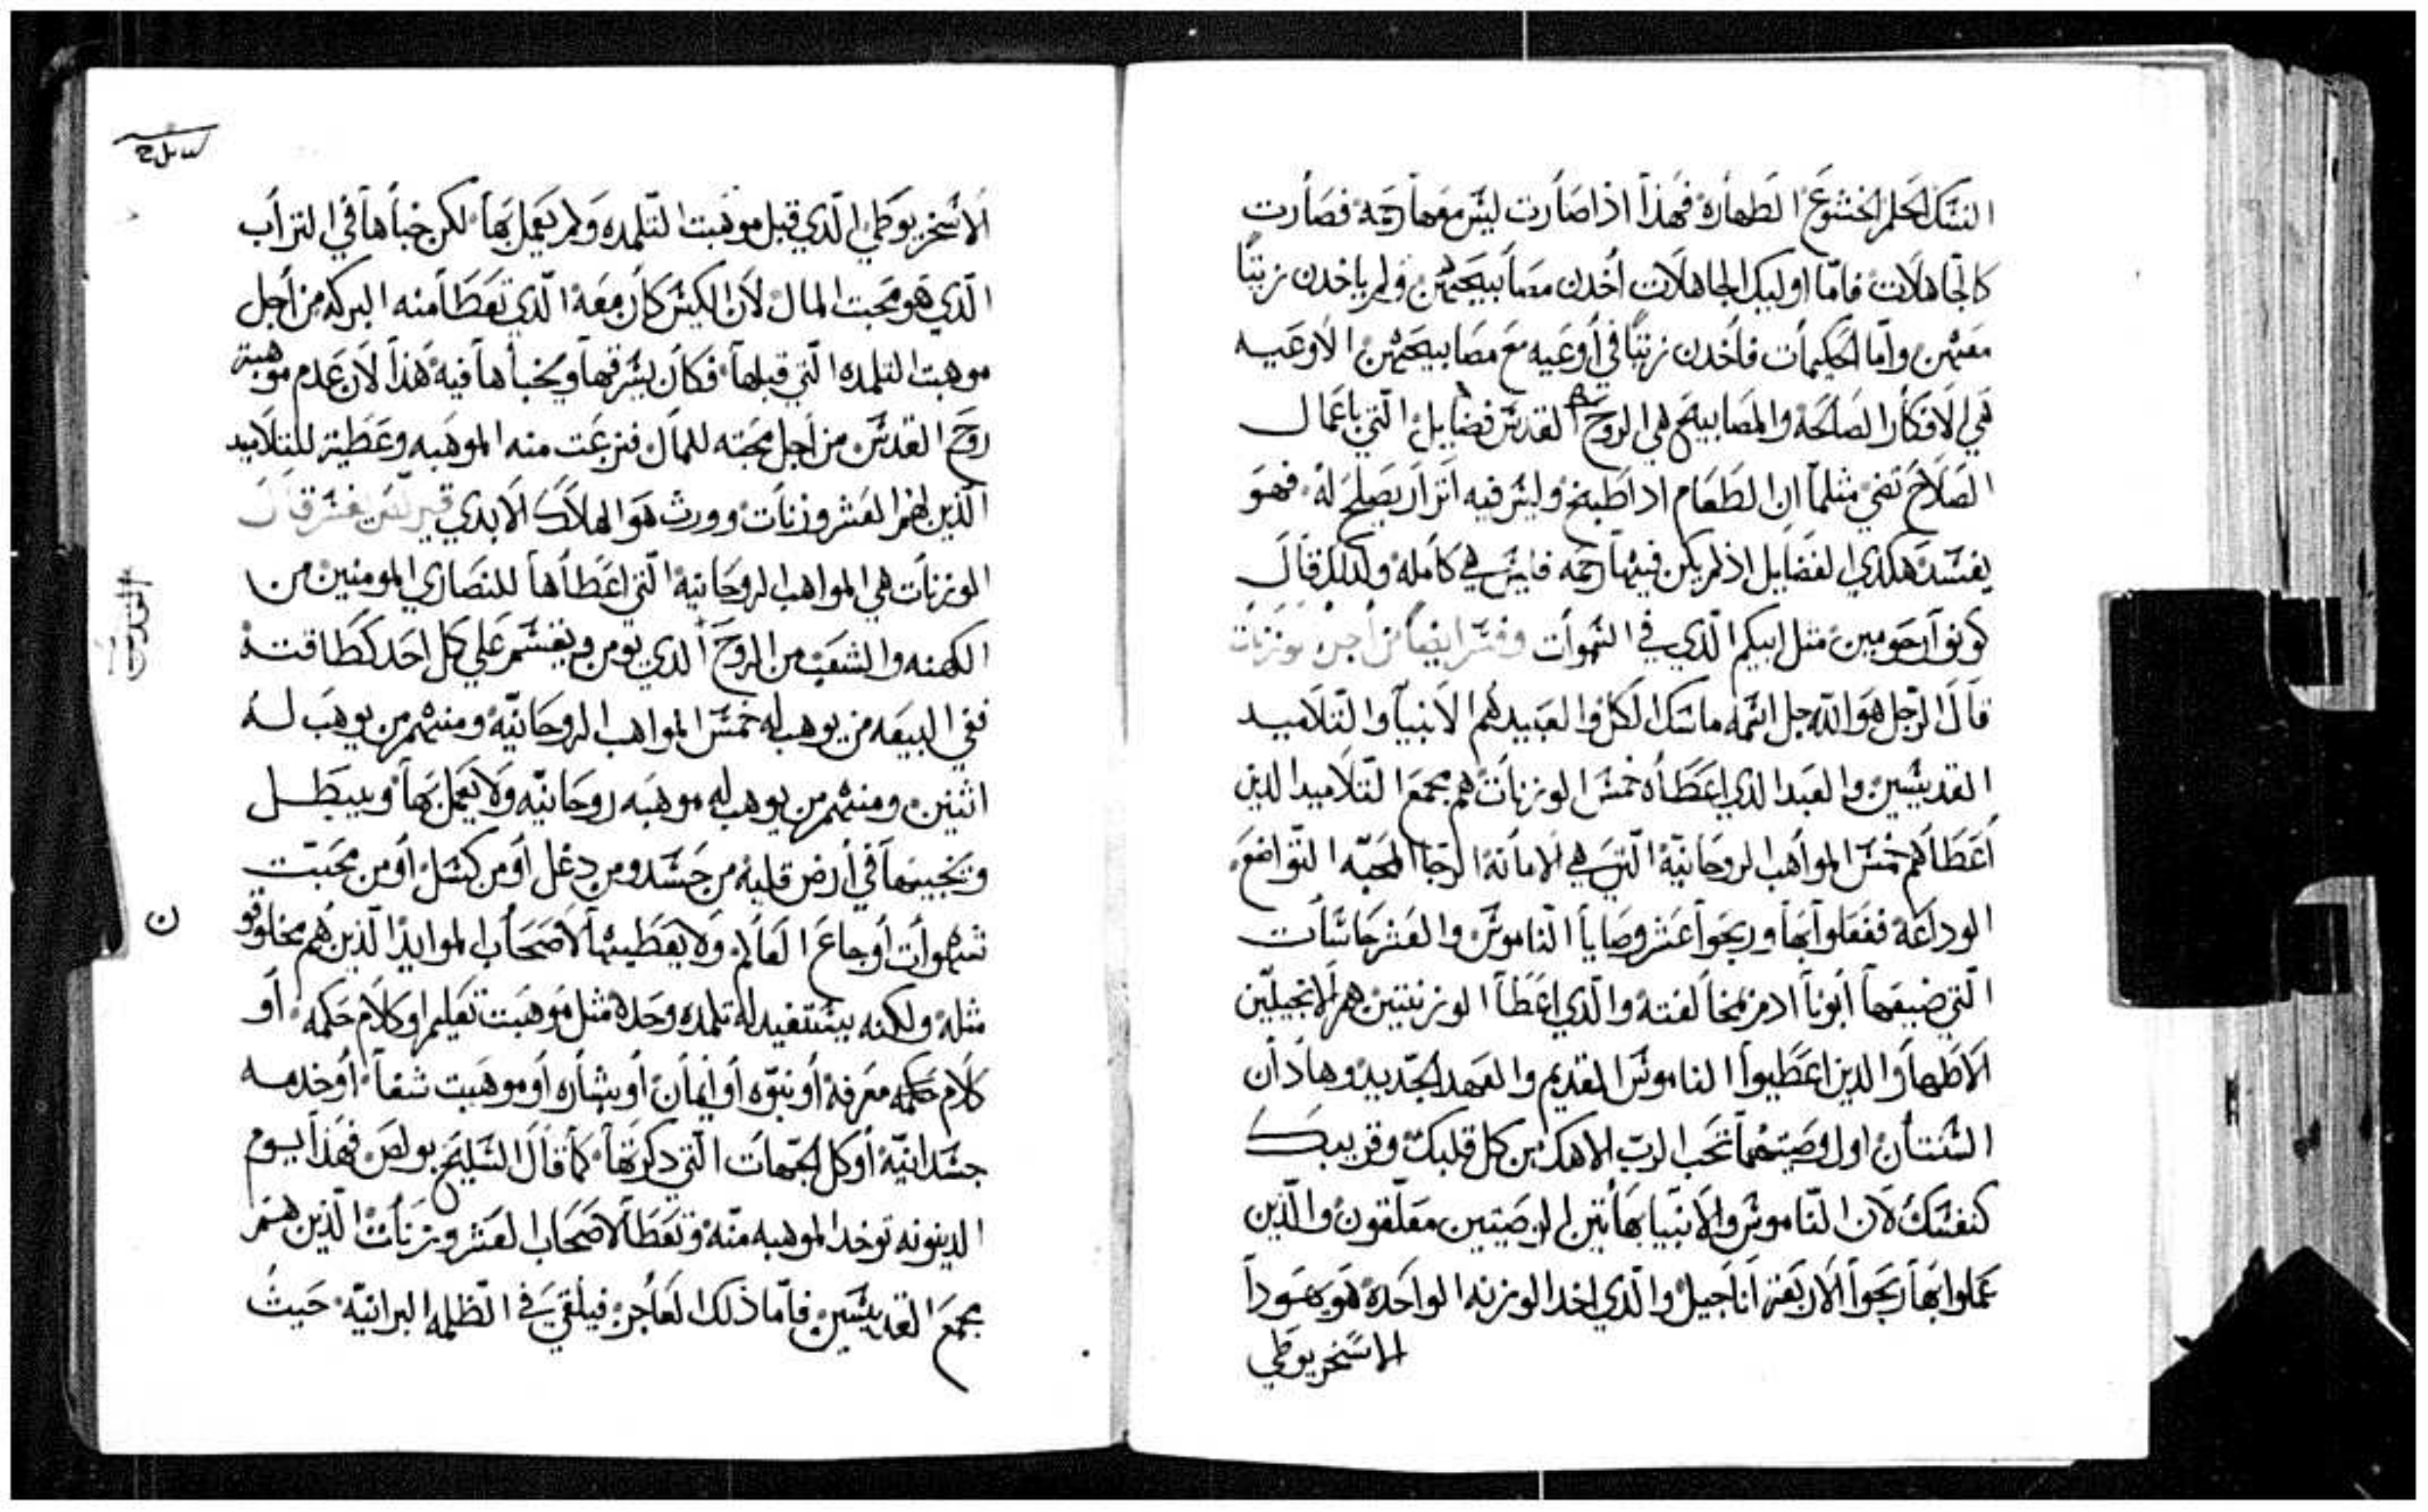 النسك الحلم الخشوع الطهاره فهذا اذا صارت ليس معها رحمه فصارت
كالجاهلات فاما اوليك الجاهلات أخدن مصابيحهن ولم ياخدن زيتًا
معهن واما الحكيمات فاخدن زيتًا في أوعيه مع مصابيحهن الاوعيه
هي الافكار الصالحة والمصابيح هي الروح القدس فضايل التي باعمال
الصلاح تضي مثلما ان الطعام اداطبخ وليس فيه ابزار يصلح له فهو
يفسد هكدي الفضايل اذ لم يكن فيها رحمه فليس هي كامله ولدلك قال
كونوا رحومين مثل ابيكم الذي في السموات وفسر ايضا من اجل الوزنات
قال الرجل هو الله جل اسمه ماسك الكل والعبيد هم الانبيا والتلاميد
القديسين والعبد الدي اعطاه خمس الوزنات هم مجمع التلاميد الدين
أعطاهم خمس المواهب الروحانية التي هي الامانة الرجا المحبه التواضع
الوداعة ففعلوا بها وربحوا عشر وصايا الناموس والعشر حاسات
التي ضيعها أبونا ادم بمخالفته والدي اعطا الوزنتين هم الانجيليين
الاطهار الدين اعطيوا الناموس القديم والعهد الجديد وهادان
السنتان اول وصيتهما تحب الرب الاهك من كل قلبك وقريبك
كنفسك لان الناموس والانبيا بهاتين الوصيتين معلقون والذين
عملوا بها ربحوا الاربعة اناجيل والذي اخد الوزنه الواحدة هو يهودا
الاسخريوطي
الاسخريوطي الذي قبل موهبت التلمده ولم يعمل بها لكن خباها في التراب
الذي هو محبت المال لان الكيس كان معه الذي تعطا منه البركه من أجل
موهبت التلمده التي قبلها فكان يسرقها ويخباها فيه هذا لان عدم موهبة
روح القدس من أجل محبته للمال فنزعت منه الموهبه وعطية للتلاميد
الذين لهم العشر وزنات وورث هو الهلاك الابدي قال
الوزنات هي المواهب الروحانية التي اعطاها للنصاري المومنين من
الكهنه والشعب من الروح الدي يومن ويقسم علي كل احد كطاقته
ففي البيعه من يوهب له خمس المواهب الروحانية ومنهم من يوهب له
اثنين ومنهم من يوهب له موهبه روحانيه ولا يعمل بها ويبطل
ويخبيها في أرض قلبه من حسد ومن دغل أو من كسل أو من محبت
شهوات أوجاع العالم ولا يعطيها لاصحاب الموايد الذين هم مخلوقو
مثله ولكنه يستفيد له تلمده وحده مثل موهبت تعليم او كلام حكمه أو
كلام حكمه معرفة أو نبوه أو أيمان أو بشاره أو موهبت شفا أو خدمه
جسدانية أو كل الجهات التي دكرتها كما قال السليح بولص فهذا يوم
الدينونه توخد الموهبه منه وتعطا لاصحاب العشر وزنات الذين هم
مجمع القديسين فاما ذلك العاجز فيلقي في الظلمه البرانيه حيث